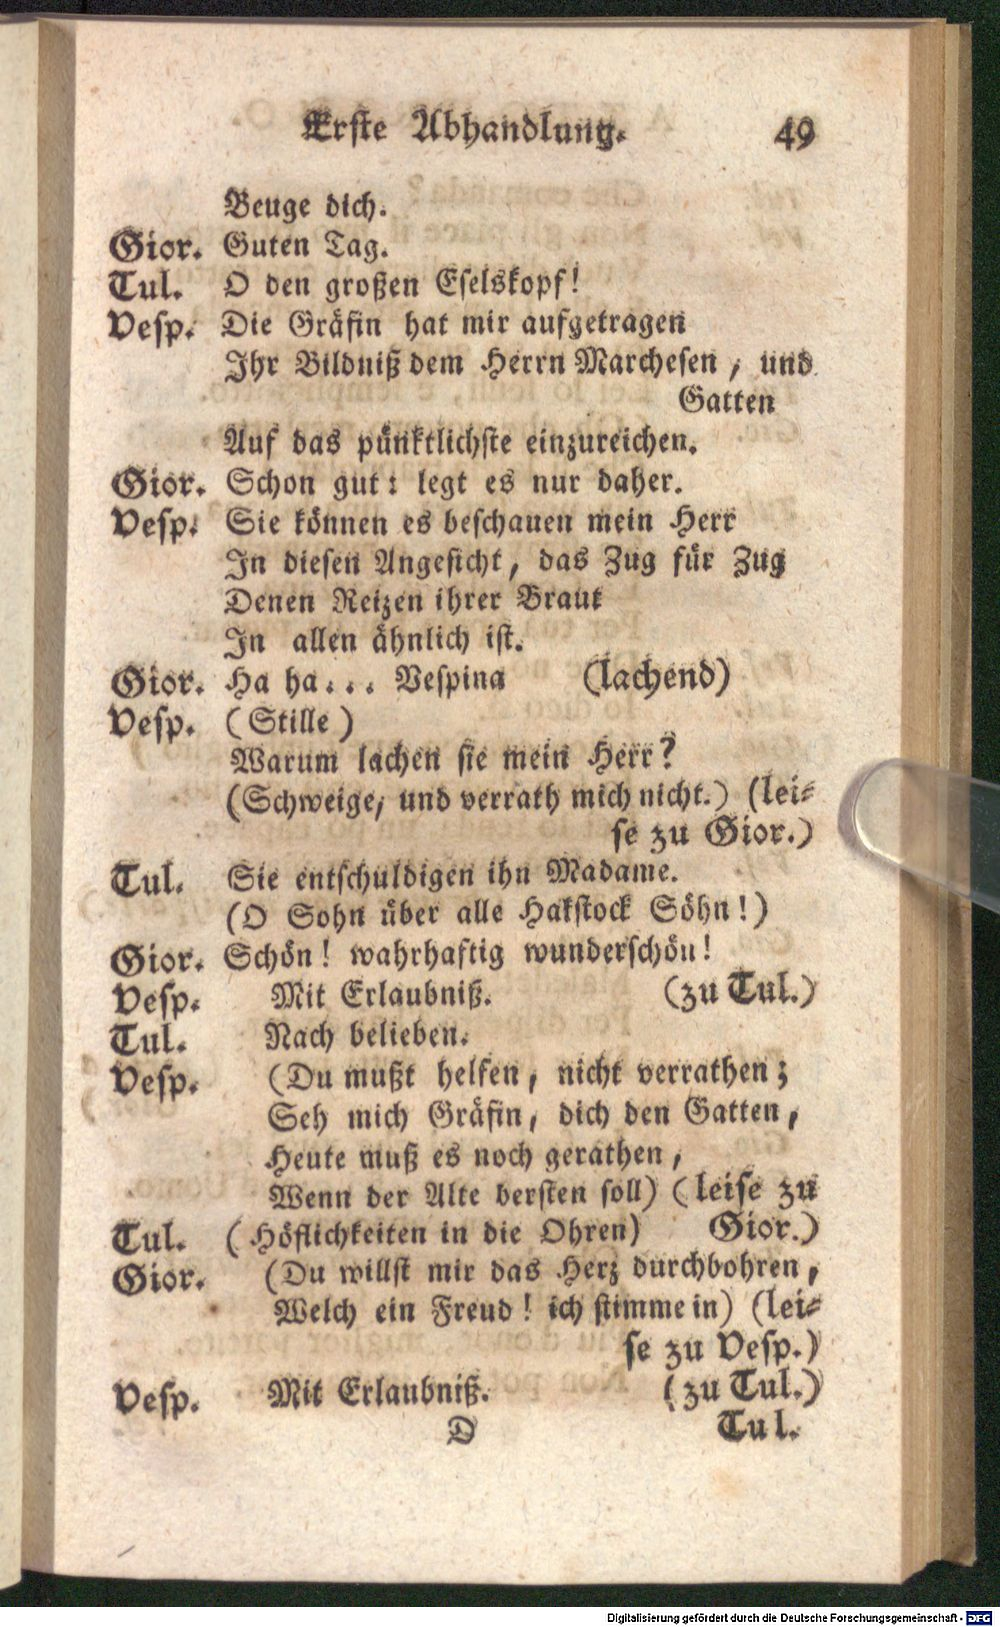 Erste Abhandlung. 49
Beuge dich.
Gior. Guten Tag.
Tul. O den großen Eselskopf!
Vesp. Die Gräfin hat mir aufgetragen
Ihr Bildniß dem Herrn Marchesen, und
Gatten
Auf das pünktlichste einzureichen.
Gior. Schon gut: legt es nur daher.
Vesp. Sie können es beschauen mein Herr
In diesen Angesicht, das Zug für Zug
Denen Reizen ihrer Braut
In allen ähnlich ist.
Gior. Ha ha... Vespina (lachend)
Vesp. (Stille)
Warum lachen sie mein Herr?
(Schweige, und verrath mich nicht.) (lei-
se zu Gior.)
Tul. Sie entschuldigen ihn Madame.
(O Sohn über alle Hakstock Söhn!)
Gior. Schön! wahrhaftig wunderschön!
Vesp. Mit Erlaubniß. (zu Tul.)
Tul. Nach belieben.
Vesp. (Du mußt helfen, nicht verrathen;
Seh mich Gräfin, dich den Gatten,
Heute muß es noch gerathen,
Wenn der Alte bersten soll) (leise zu
Tul. (Höflichkeiten in die Ohren) Gior.)
Gior. (Du willst mir das Herz durchbohren,
Welch ein Freud! ich stimme in) (lei-
se zu Vesp.)
Vesp. Mit Erlaubniß. (zu Tul.)
D Tul.
Digitalisierung gefördert durch die Deutsche Forschungsgemeinschaft - DFG